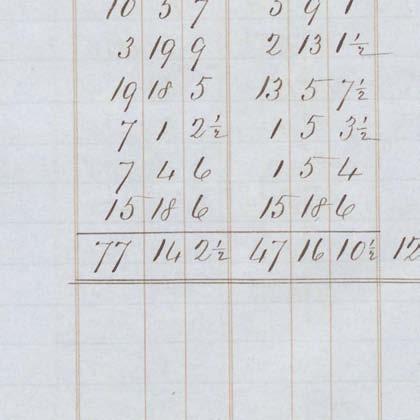 10 5 7 9
3 19 9 2 13 1½
19 18 5 13 5 7½
7 1 2½ 1 5 3½
7 4 6 1 5 4
15 18 6 15 18 6
77 14 2½ 47 16 10½ 12